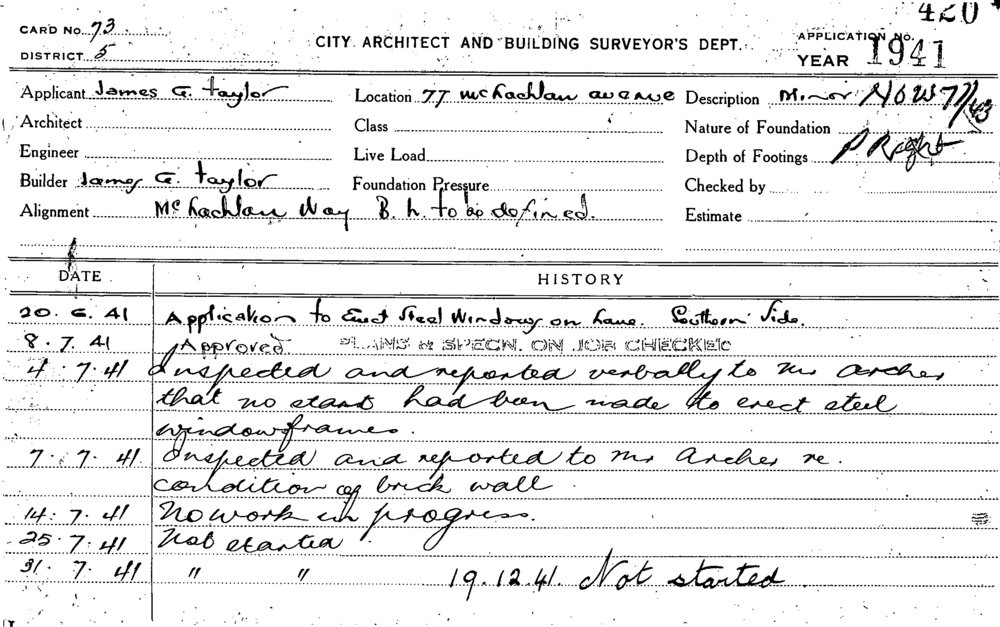 420
CARD No. 73
CITY ARCHITECT AND BUILDING SURVEYOR'S DEPT.
APPLICATION No.
DISTRICT 5
YEAR 1941
Applicant James G. Taylor
Location 77 McLachlan Avenue
Description Minor
Architect
Class
Nature of Foundation
Engineer
Live Load
Depth of Footings
Builder James G. Taylor
Foundation Pressure
Checked by
Alignment McLachlan Way B. L. to be defined.
Estimate
DATE
HISTORY
20. 6. 41 Application to Erect Steel Windows on Lane. Southern Side.
8. 7. 41 Approved PLANS & SPECN. ON JOB CHECKED
4. 7. 41 Inspected and reported verbally to Mr Archer
that no start had been made to erect steel
windowframes.
7. 7. 41 Inspected and reported to Mr Archer re.
condition of brick wall
14. 7. 41 No work in progress.
25. 7. 41 Not started
31. 7. 41 " " 19. 12. 41. Not started